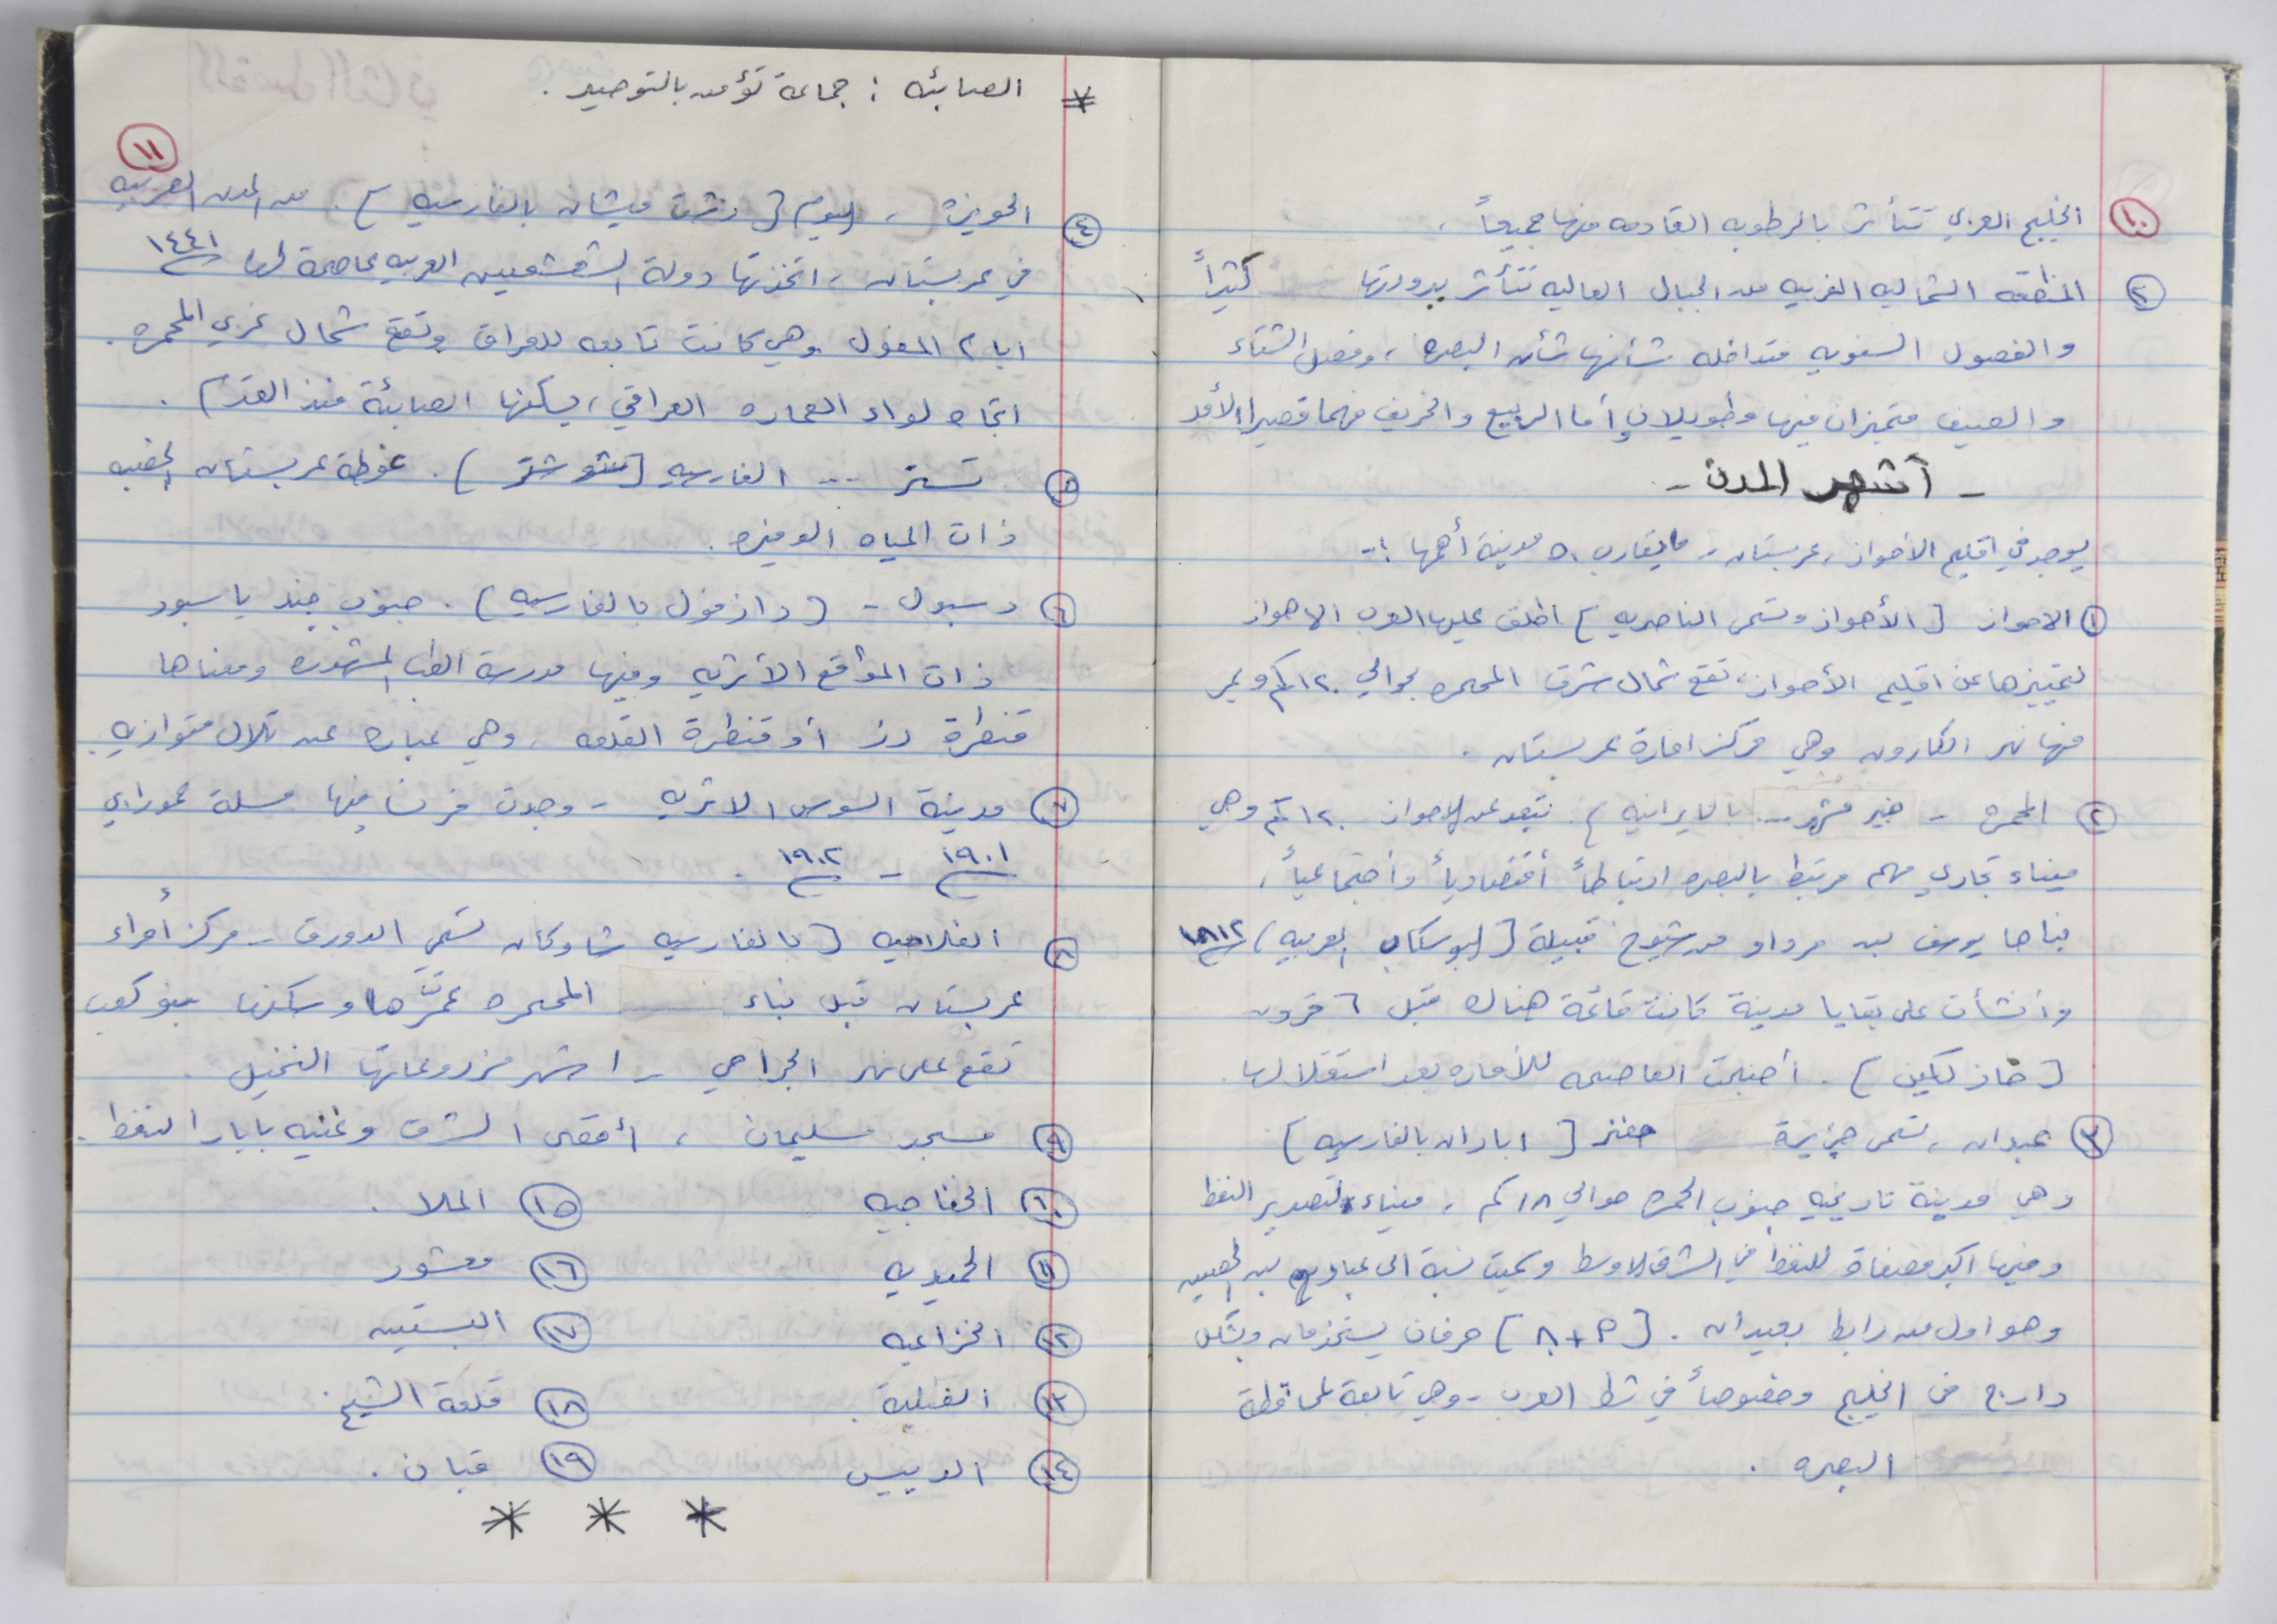 ١٠
الخليج العربي تتأثر بالرطوبه القادمه منها جميعاً .
٢ المنطقه الشماليه الغربيه من الجبال العاليه تتأثر ببرودتها كثيراً
والفصول السنويه متداخله شأنها شأن البصره ، وفصل الشتاء
والصيف متميزان فيها وطويلان أما الربيع والخريف فهما قصيرا الأمد
- أشهر المدن -
يوجد في اقليم الأحواز ، عربستان - مايقارب ٥٠ مدينة أهمها :-
١ الاحواز [ الأهواز وتسمى الناصريه ] اطلق عليها العرب الاهواز
لتمييزها عن اقليم الأحواز ، تقع شمال شرق المحمره بحوالي ١٢٠ كم ويمر
فيها نهر الكارون وهي مركز امارة عربستان .
٢ المحمره - خير مشهر ... بالايرانيه ] . تبعد عن الاحواز ١٢٠ كم وهي
ميناء تجاري مهم مرتبط بالبصره ارتباطاً أقتصادياً وأجتماعياً ،
بناها يوسف بن مرداو من شيوخ قبيلة [ البوسكاب العربيه ] ١٨١٢
وأنشأت على بقايا مدينة كانت قائمة هناك قبل ٦ قرون
[ ]. أصبحت العاصمه للأماره بعد استقلالها .
٣ عبدان ، تسمى جزيرة خضر [ ابادان بالفارسيه ]
وهي مدينة تاريخيه جنوب المحمره حوالي ١٨ كم ، ميناء لتصدير النفط
وفيها اكبر مصفاة للنفط في الشرق الاوسط وسميت نسبة الى عباد بن الحصين
وهو اول من رابط بعبدان . [ ٨+٥ ] حرفان يستخدمان وبشكل
دارج في الخليج وخصوصاً في شط العرب - وهي تابعة لمحافظة
البصره .
* الصابئه : جماعة تؤمن بالتوحيد .
١١
٤ الحويزه ، اليوم [ دشت ميشان بالفارسيه ] . من المدن العربيه
في عربستان ، اتخذتها دولة المشعشعيين العربيه عاصمة لها ١٤٤١
ابان المغول وهي كانت تابعه للعراق وتقع شمال غربي المحمره .
اتجاه لواء العماره العراقي ، يسكنها الصابئة منذ القدم .
٥ تستر ... الفارسيه [ شوشتر ] . غوطة عربستان الخصبه
ذات المياه الوفيره .
٦ دسبول - [ دازفول بالفارسيه ] . جنوب جند ياسبور
ذات المواقع الأثريه وفيها مدرسة الطب المشهوره ومعناها
قنطرة دز أو قنطرة القلعه ، وهي عباره عن تلال متوازيه .
٧ مدينة السوس الاثريه - وجدت فرنسا فيها مسلة حمورابي
١٩٠١ - ١٩٠٢ .
٨ الفلاحيه [ بالفارسيه شاوكان تسمى الدورق - مركز أمراء
عربستان قبل بناء المحمره عمرها وسكنها بنو كعب
تقع على نهر الجراحي - اشهر مزروعاتها النخيل .
٩ مسجد سليمان ، أقصى الشرق وغنيه بابار النفط .
١٠ الخفاجيه
١١ الحميديه
١٢ الخزاعيه
١٣ القنيطره .
١٤ الدبيس
١٥ الملا .
١٦ معشور
١٧ البسيتين
١٨ قلعة الشيخ .
١٩ قبان .
* * *